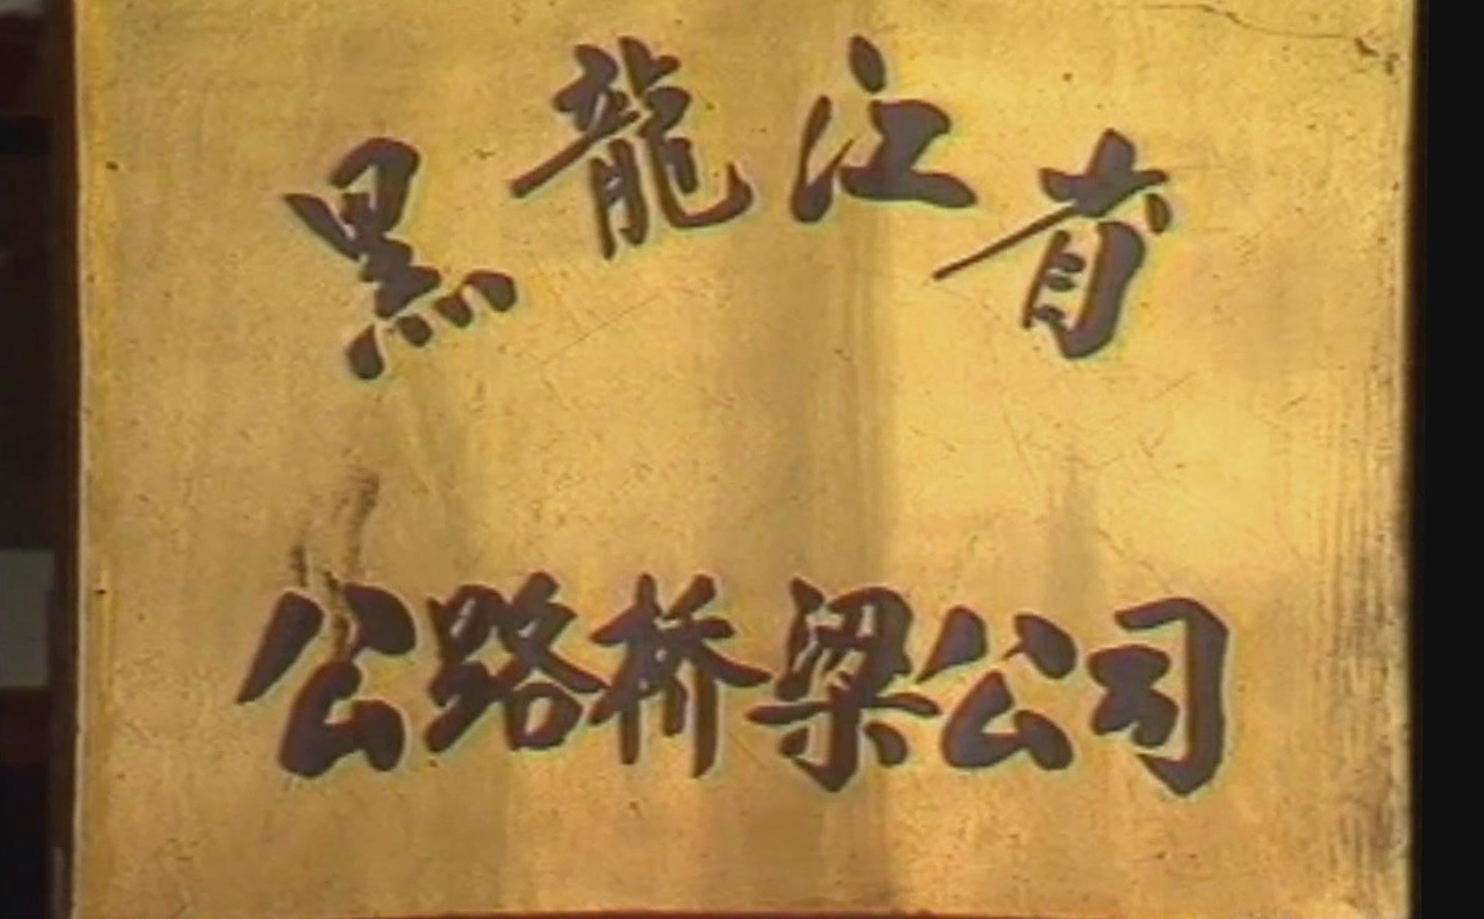 黑龍江省
公路桥梁公司